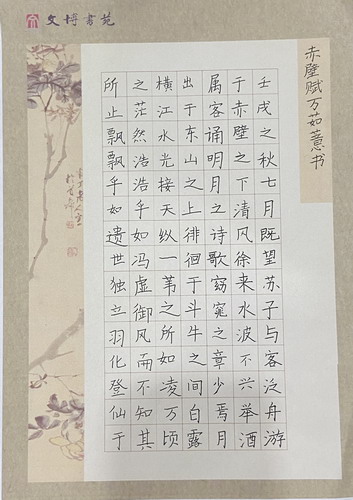 文博書苑
赤壁赋万茹薏书
壬戌之秋七月既望苏子与客泛舟游
于赤壁之下清风徐来水波不兴举酒
属客诵明月之诗歌窈窕之章少焉月
出于东山之上徘徊于斗牛之间白露
横江水光接天纵一苇之所如凌万顷
之茫然浩浩乎如冯虚御风而不知其
所止飘飘乎如遗世独立羽化登仙于